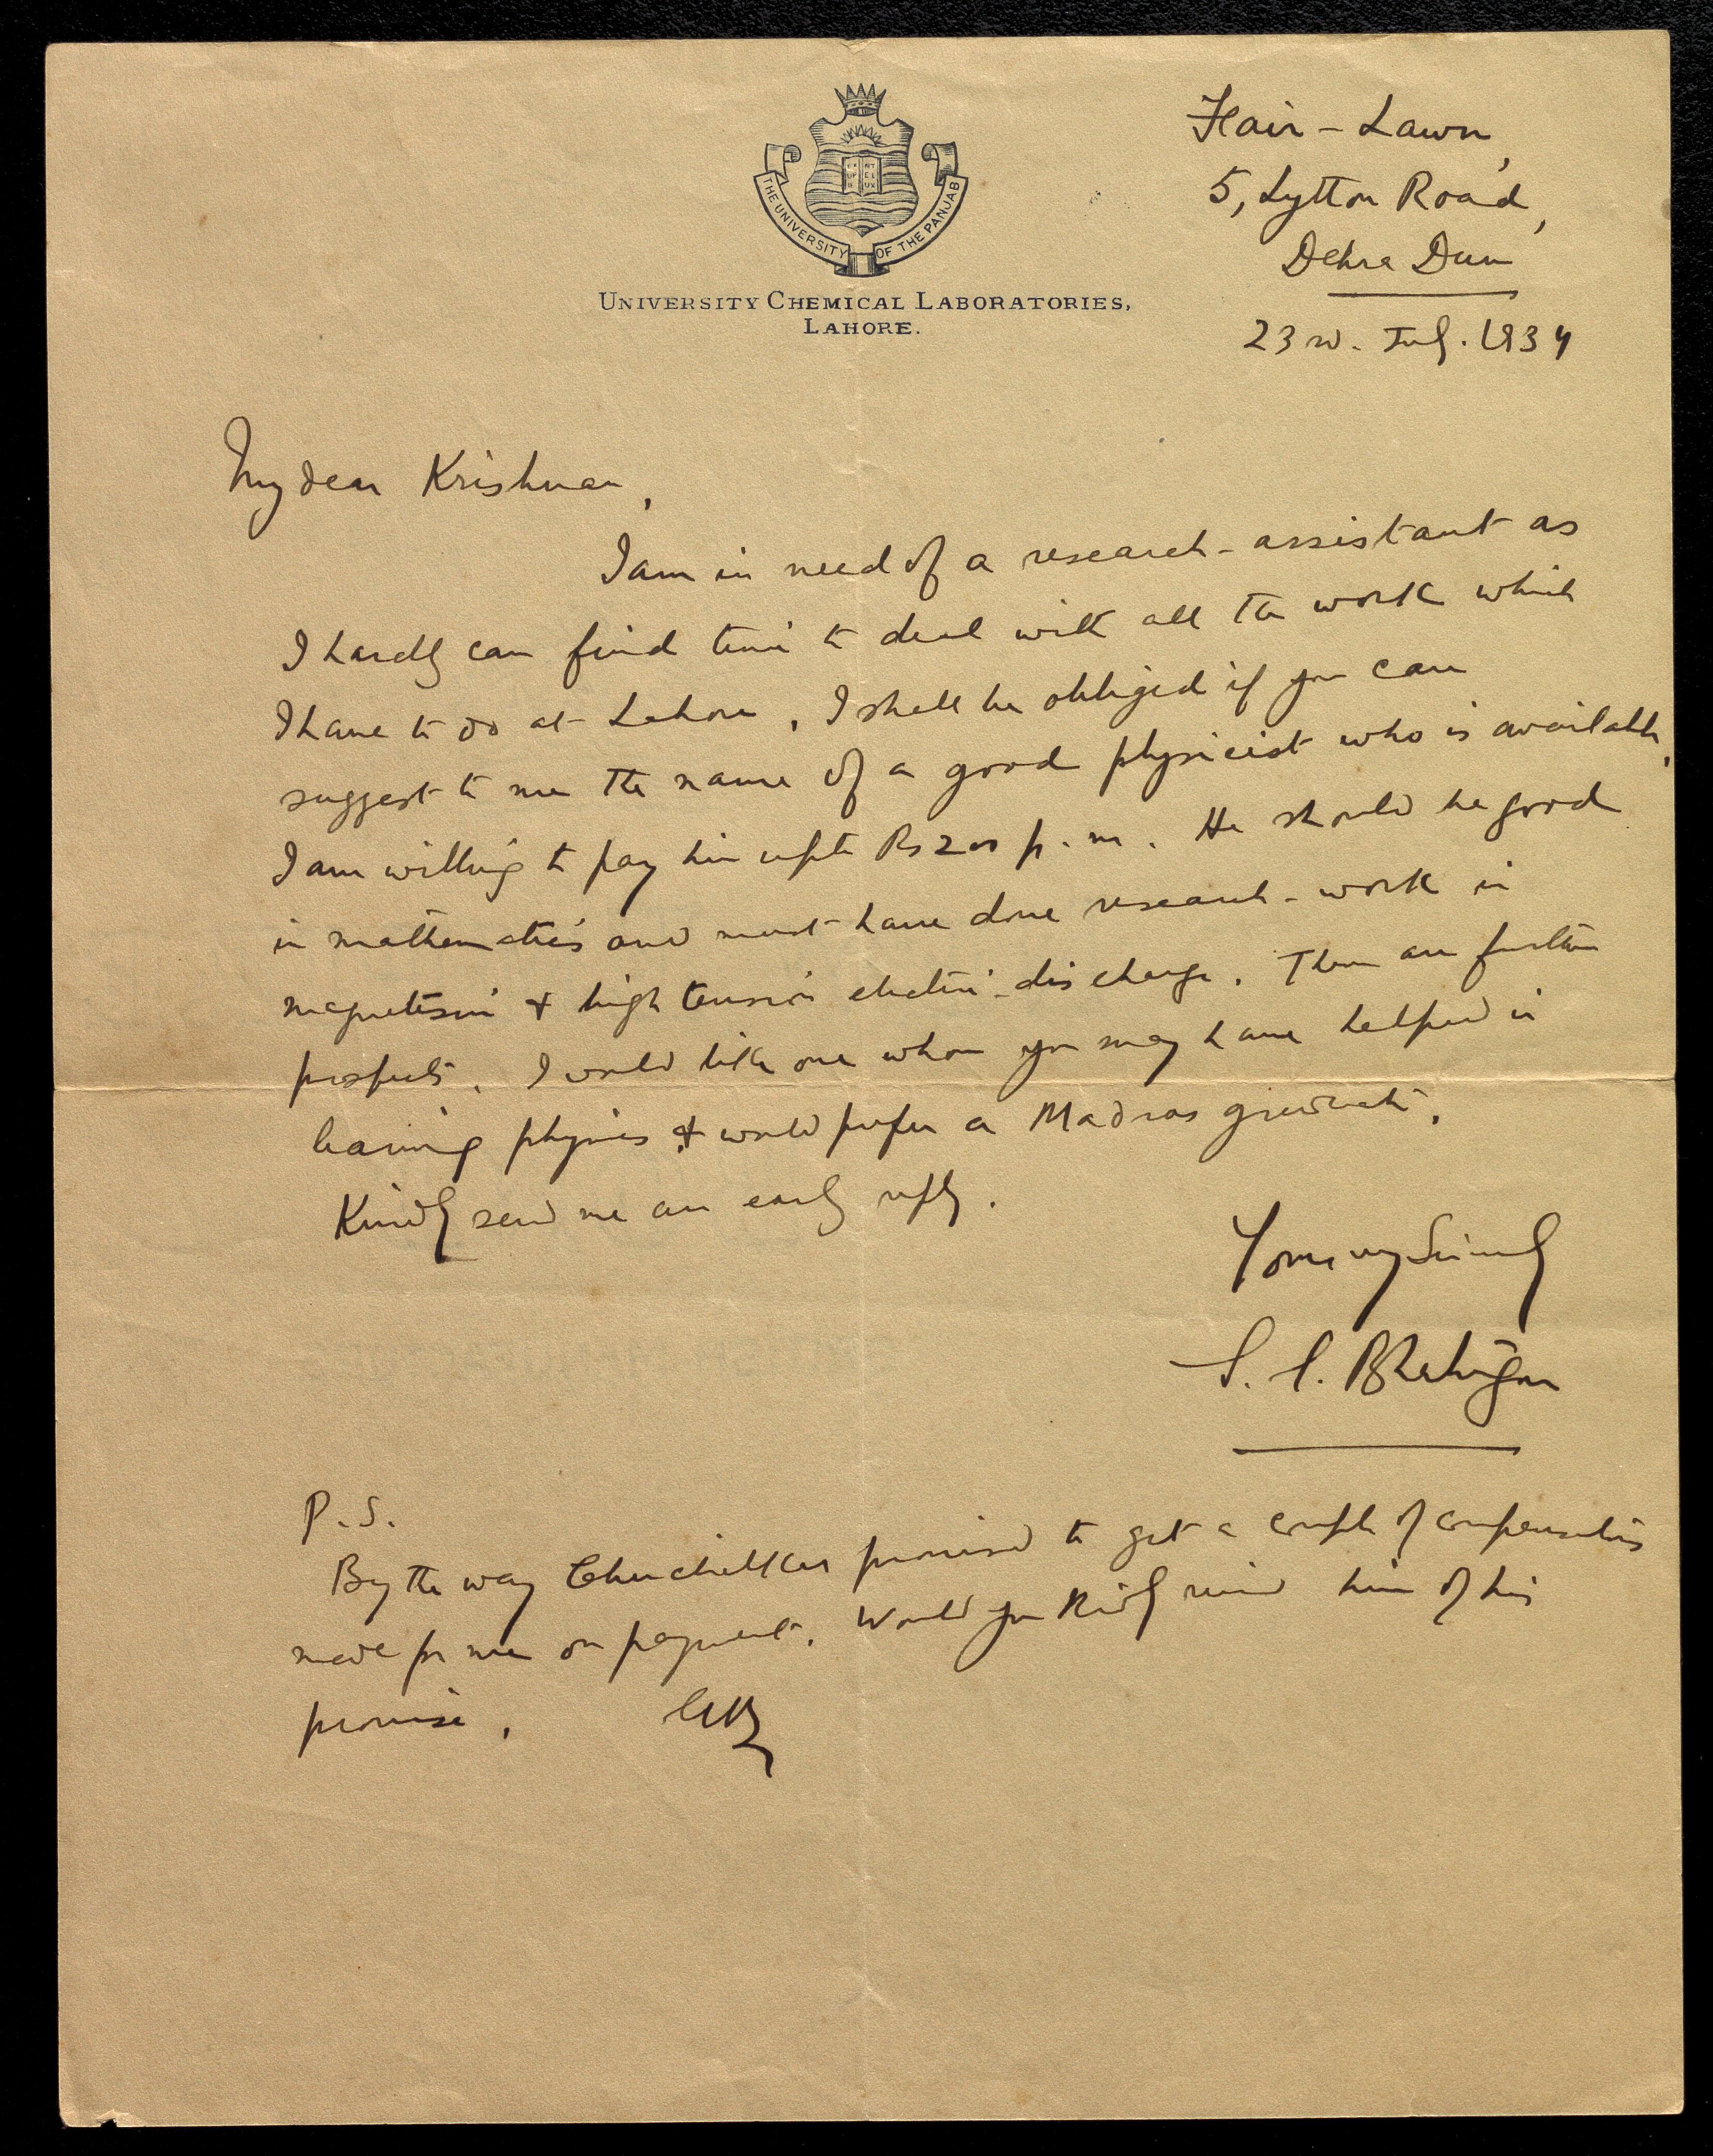 THE UNIVERSITY OF THE PANJAB
UNIVERSITY CHEMICAL LABORATORIES,
LAHORE.
Fair-Lawn,
5, Lytton Road,
Dehra Dun
23rd. July. 1934
My dear Krishnan,
I am in need of a research-assistant as
I hardly can find time to deal with all the work which
I have to do at Lahore. I shall be obliged if you can
suggest to me the name of a good physicist who is available.
I am willing to pay him upto Rs 200 p.m. He should be good
in mathematics and must have done research-work in
magnetism & high tension electric-discharge. There are further
prospects. I would like one whom you may have helped in
learning physics & would prefer a Madras graduate.
Kindly send me an early reply.
Yours very sincerely
S. S. Bhatnagar
P.S.
By the way promised to get a couple of compensators
made for me on payment. Would you kindly remind him of his
promise.